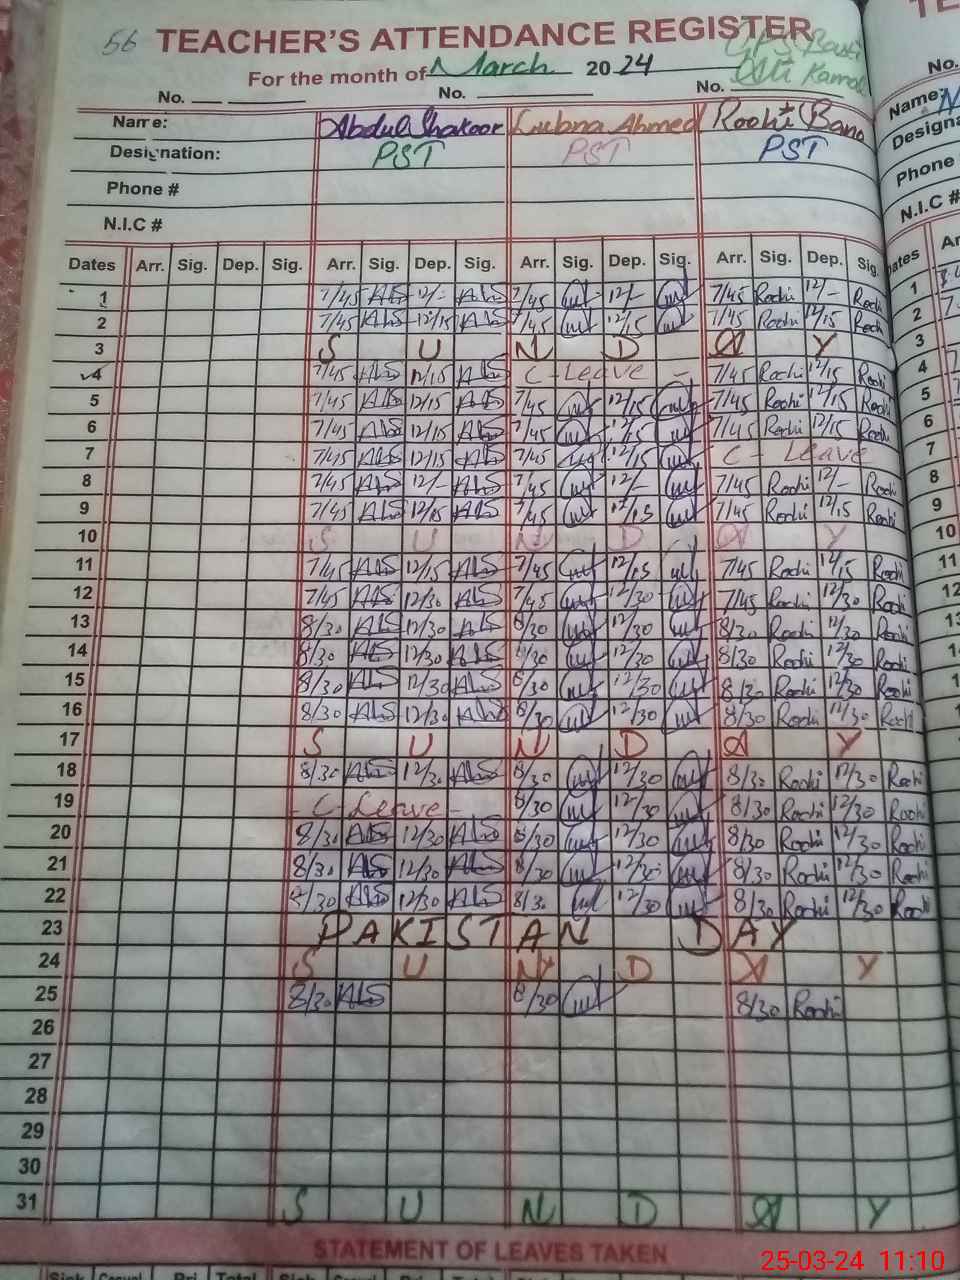 56 TEACHER'S ATTENDANCE REGISTER
GPS Basti
For the month of March 2024
No. No. No.
Name: Abdul Shakoor Lubna Ahmed Roohi Bano
Designation: PST PST PST
Phone #
N.I.C #
Dates Arr. Sig. Dep. Sig. Arr. Sig. Dep. Sig. Arr. Sig. Dep. Sig. Arr. Sig. Dep. Sig.
1 7/45 ALS 12/- ALS 7/45 12/- 7/45 Roohi 12/- Roohi
2 7/45 ALS 12/15 ALS 7/45 12/15 7/45 Roohi 12/15 Roohi
3 S U N D A Y
4 7/45 ALS 12/15 ALS C-Leave - 7/45 Roohi 12/15 Roohi
5 7/45 ALS 12/15 ALS 7/45 12/15 7/45 Roohi 12/15 Roohi
6 7/45 ALS 12/15 ALS 7/45 12/15 7/45 Roohi 12/15 Roohi
7 7/45 ALS 12/15 ALS 7/45 12/15 C- Leave
8 7/45 ALS 12/- ALS 7/45 12/- 7/45 Roohi 12/- Roohi
9 7/45 ALS 12/15 ALS 7/45 12/15 7/45 Roohi 12/15 Roohi
10 S U N D A Y
11 7/45 ALS 12/15 ALS 7/45 12/15 7/45 Roohi 12/15 Roohi
12 7/45 ALS 12/30 ALS 7/45 12/30 7/45 Roohi 12/30 Roohi
13 8/30 ALS 12/30 ALS 8/30 12/30 8/30 Roohi 12/30 Roohi
14 8/30 ALS 12/30 ALS 8/30 12/30 8/30 Roohi 12/30 Roohi
15 8/30 ALS 12/30 ALS 8/30 12/30 8/30 Roohi 12/30 Roohi
16 8/30 ALS 12/30 ALS 8/30 12/30 8/30 Roohi 12/30 Roohi
17 S U N D A Y
18 8/30 ALS 12/30 ALS 8/30 12/30 8/30 Roohi 12/30 Roohi
19 - C-Leave - 8/30 12/30 8/30 Roohi 12/30 Roohi
20 8/30 ALS 12/30 ALS 8/30 12/30 8/30 Roohi 12/30 Roohi
21 8/30 ALS 12/30 ALS 8/30 12/30 8/30 Roohi 12/30 Roohi
22 8/30 ALS 12/30 ALS 8/30 12/30 8/30 Roohi 12/30 Roohi
23 PAKISTAN DAY
24 S U N D A Y
25 8/30 ALS 8/30 8/30 Roohi
26
27
28
29
30
31 S U N D A Y
STATEMENT OF LEAVES TAKEN
25-03-24 11:10